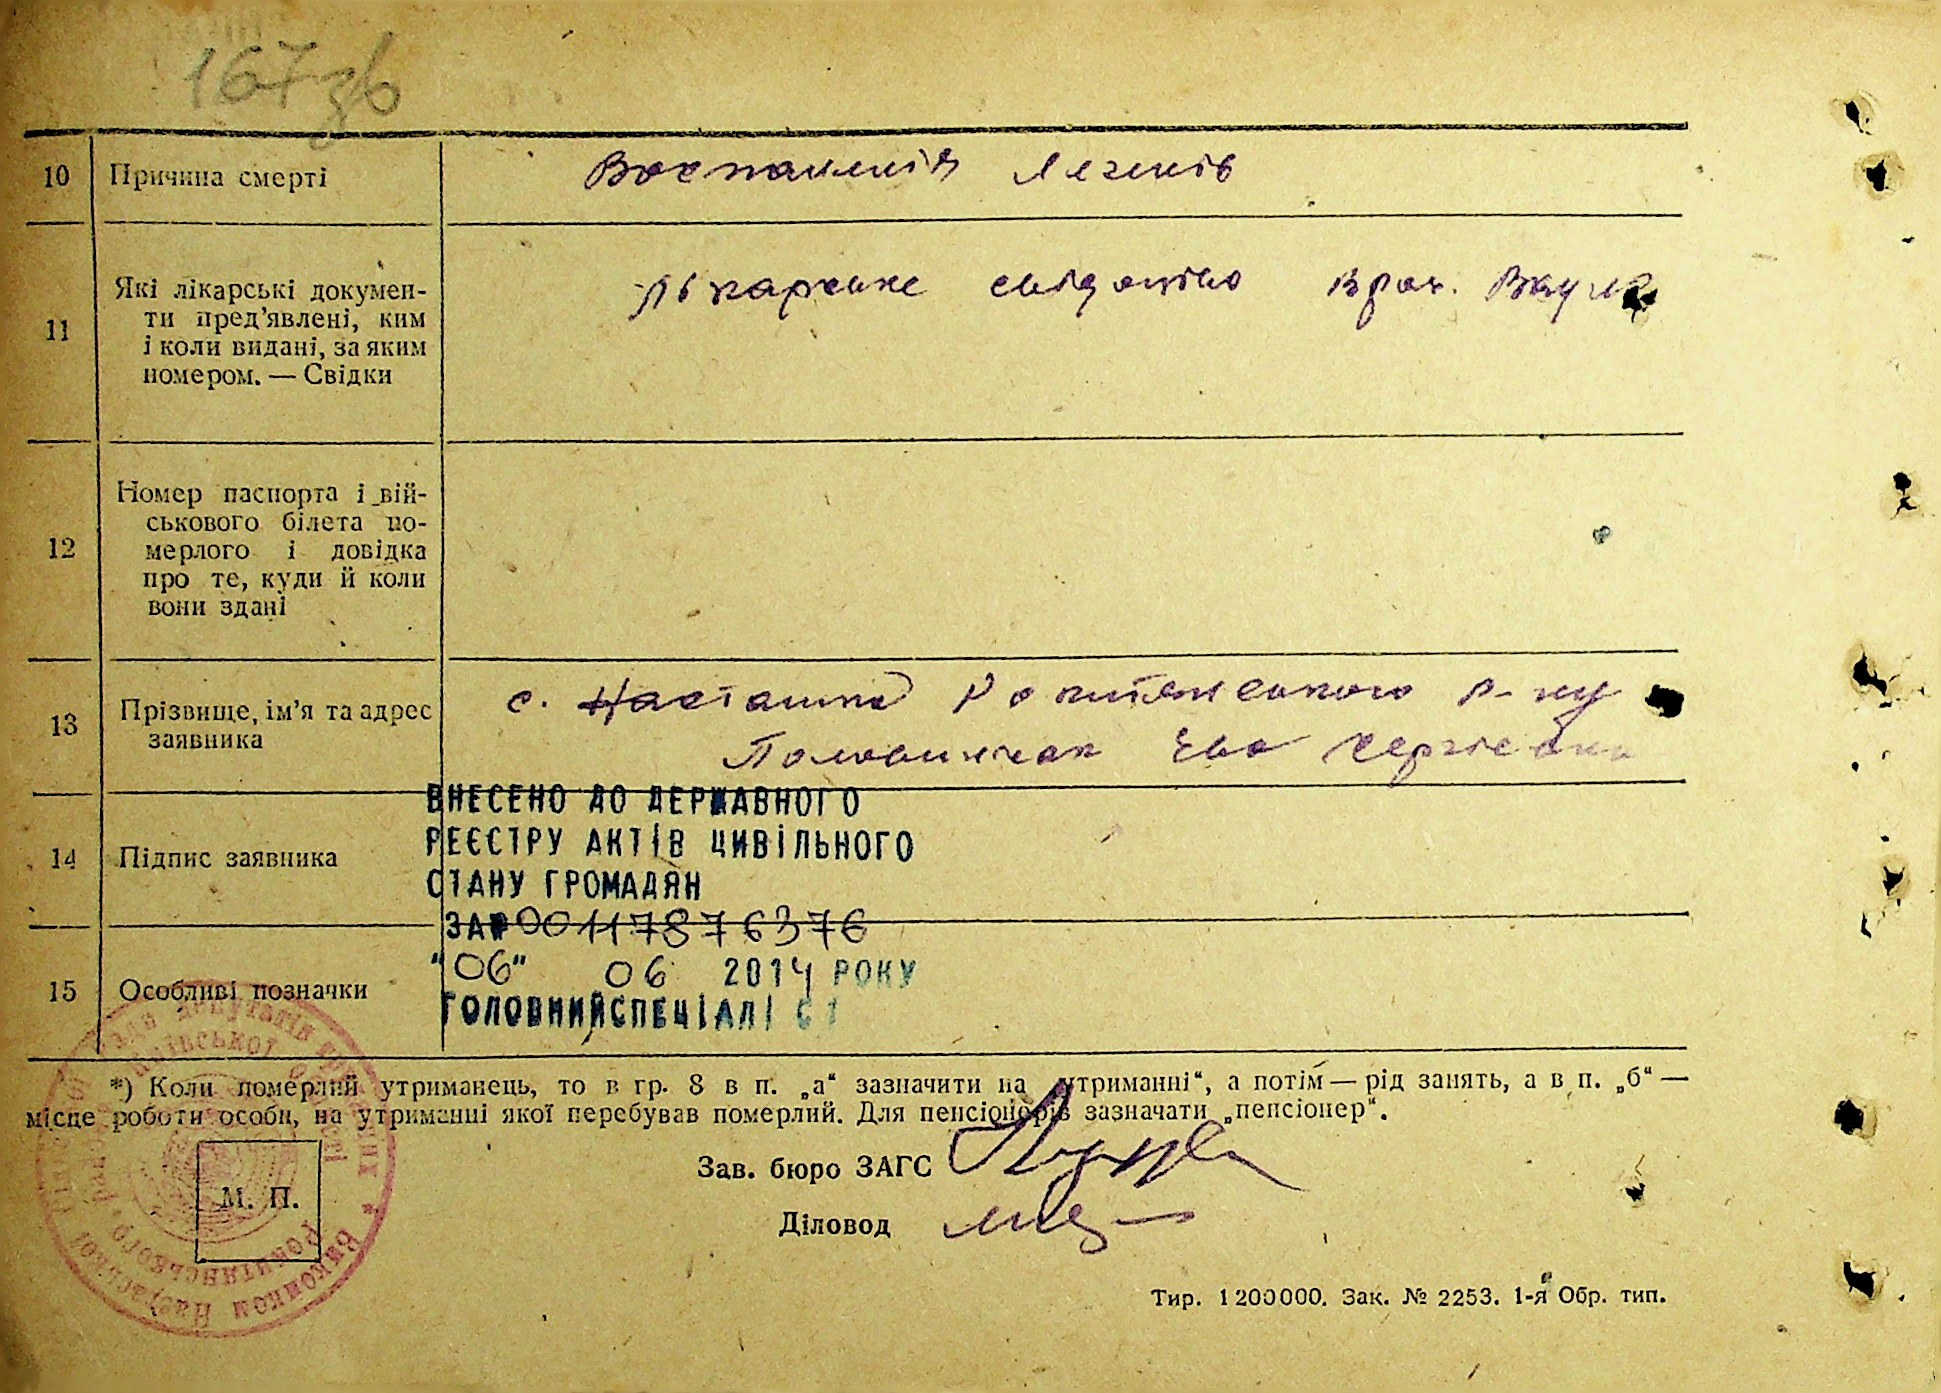 167зв
10 Причина смерті Воспаления Легенів
11 Які лікарські документи пред'явлені, ким і коли видані, за яким номером. — Свідки
Лікарське свідоцтво врач.
12 Номер паспорта і вій-
ськового білета по-
мерлого і довідка
про те, куди й коли
вони здані
13 Прізвище, ім'я та адрес
заявника
с. Насташка Рокитянського р-ну
Половинчак Ева Сергієвна
14 Підпис заявника
15 Особливі позначки
ВНЕСЕНО ДО ДЕРЖАВНОГО
РЕЄСТРУ АКТІВ ЦИВІЛЬНОГО
СТАНУ ГРОМАДЯН
ЗА№00117876376
"06" 06 2014 РОКУ
ГОЛОВНИЙ СПЕЦІАЛІСТ
*) Коли померлий утриманець, то в гр. 8 в п. „а“ зазначити на „утриманні“, а потім — рід занять, а в п. „б“ —
місце роботи особи, на утриманні якої перебував померлий. Для пенсіонерів зазначати „пенсіонер“.
Зав. бюро ЗАГС
Діловод
М. П.
Тир. 1200000. Зак. № 2253. 1-я Обр. тип.